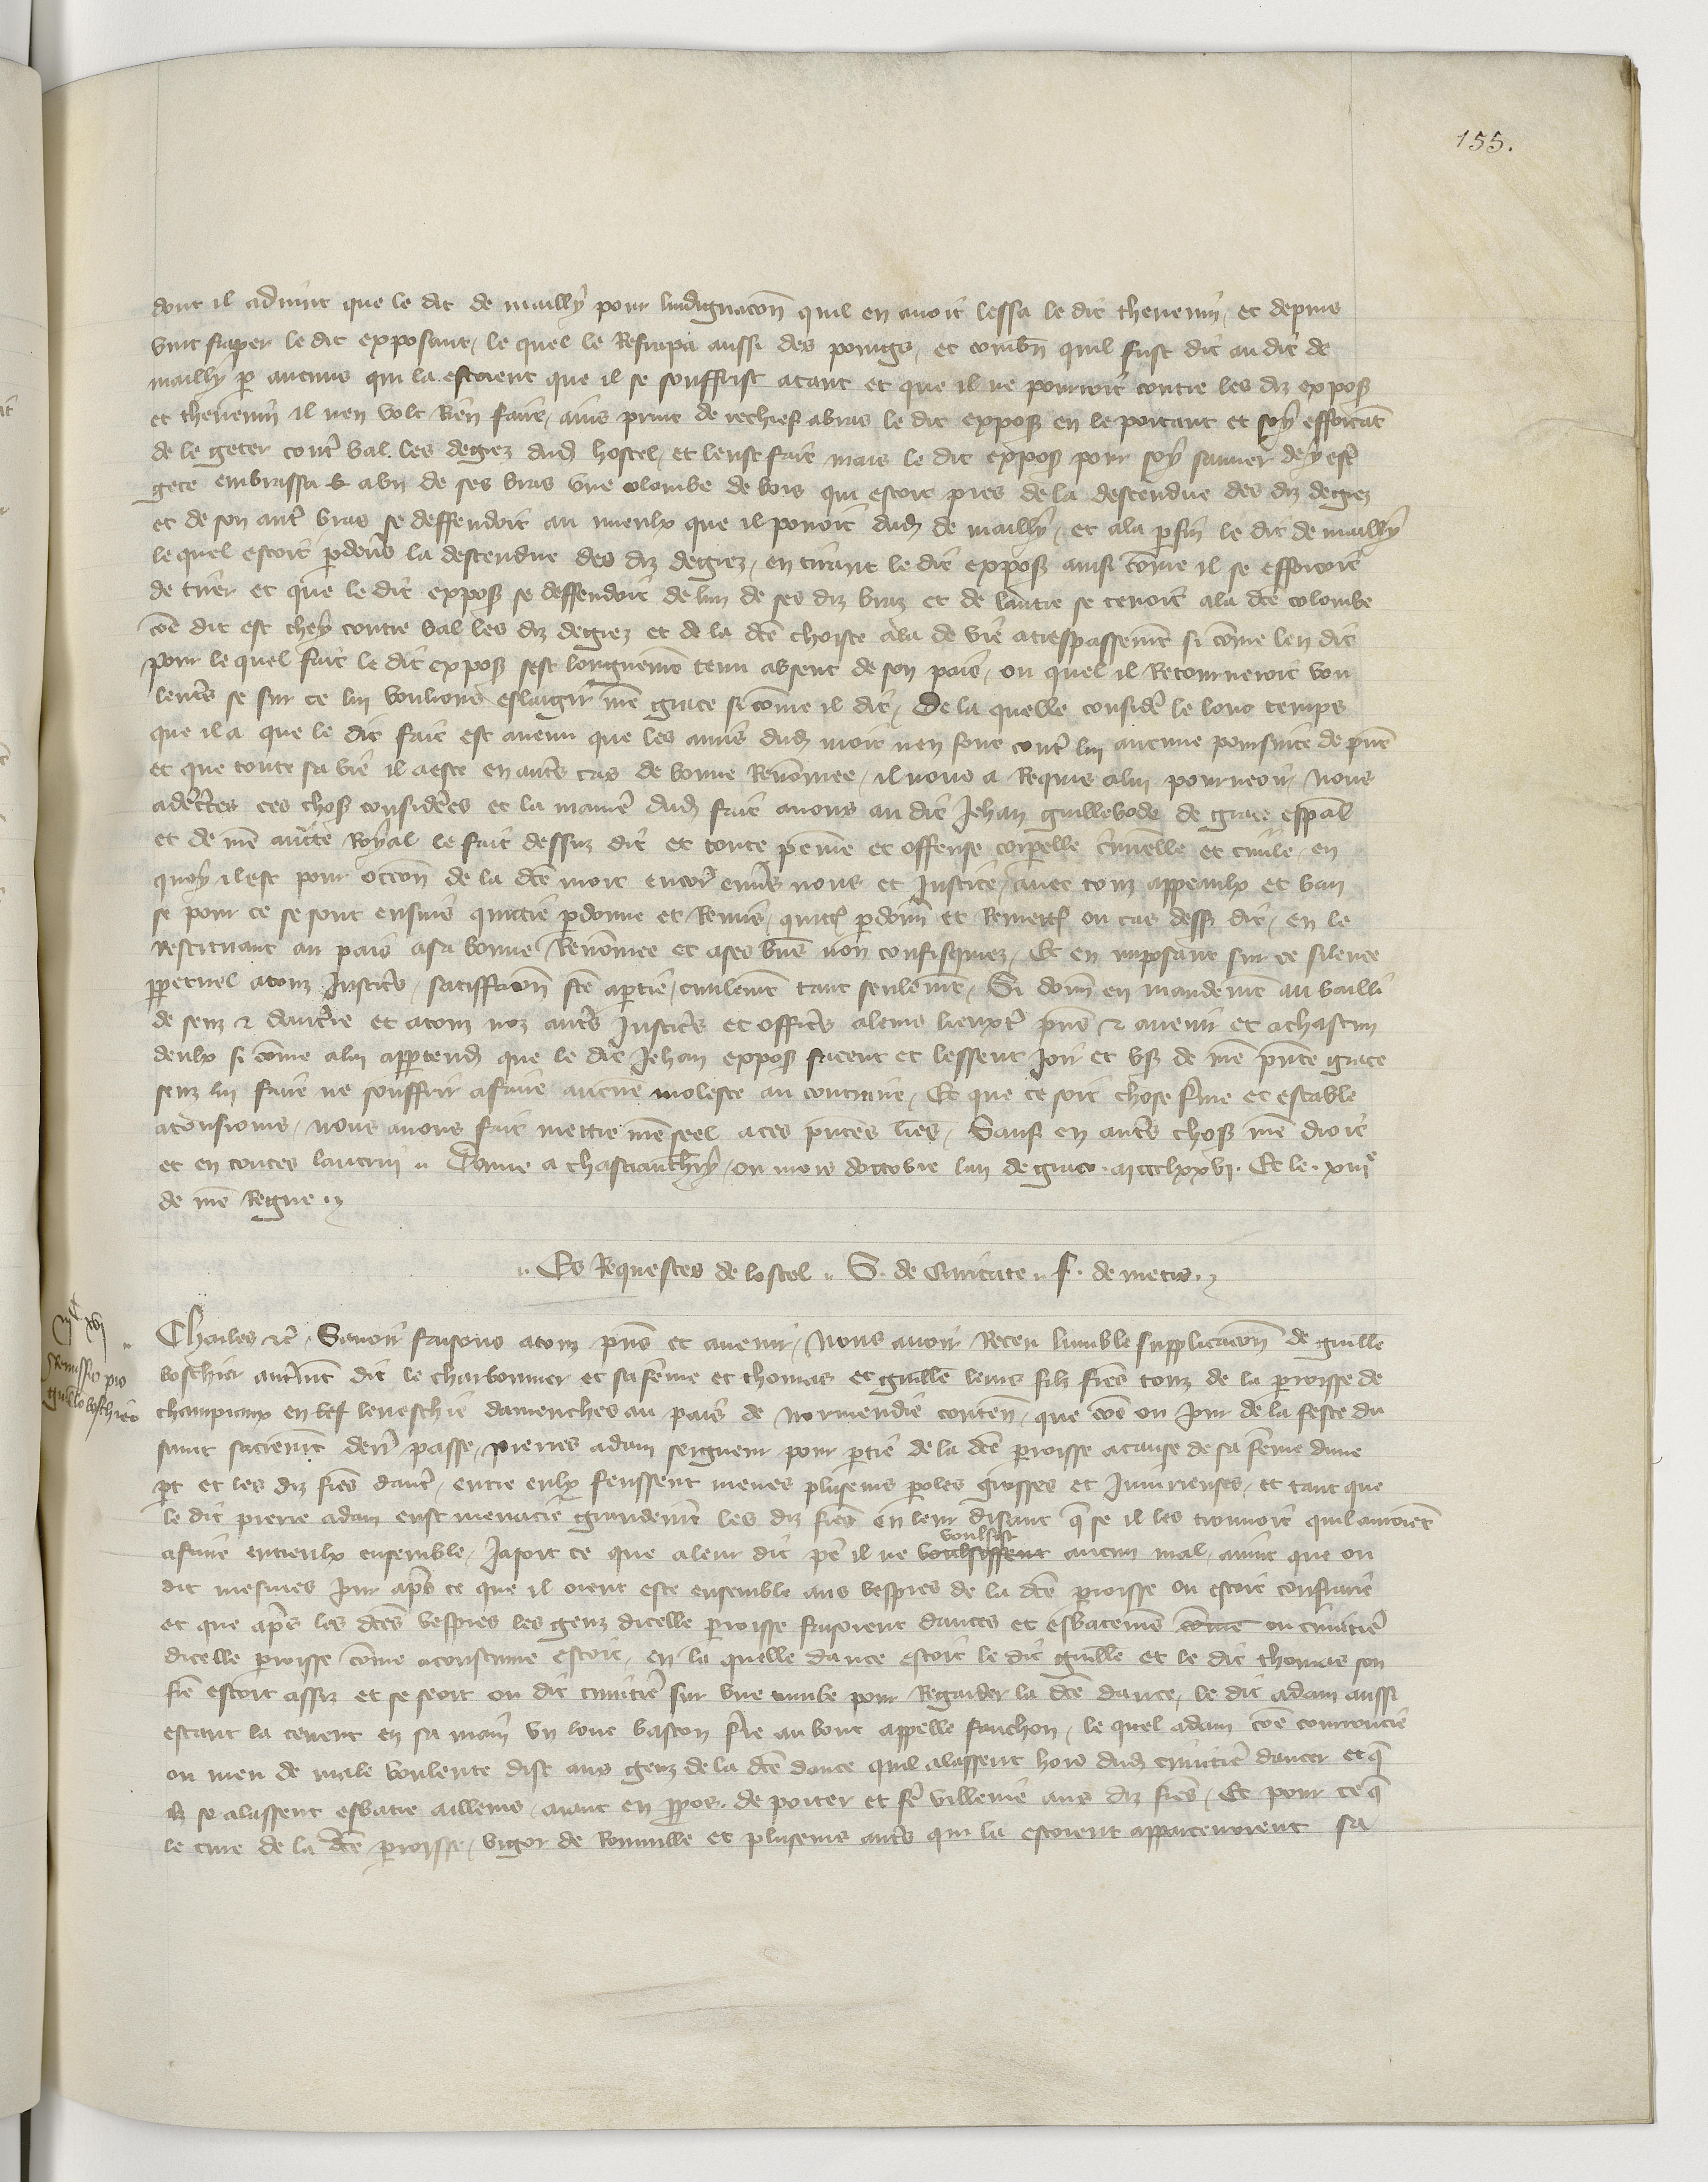 155.
dont il advint que le dit de mailly pour lindignacōn quil en avoit lessa le dit thevenin / et depuis
vint fraper le dit exposant / le quel le Refrapa aussi des poings / et combn̄ quil fust dit au dit de
mailly p̱ aucuns qui la estoient que il se souffrist atant et que il ne pourroit contre les diz expos̱
et thevenin il nen volt Rien faire / ains print de rechief abras le dit expos̱ en le portant et soy efforcāt
de le geter contr̄ val les degrez dud̄ hostel / et leust fait mais le dit expos̱ pour soy sauver dey estr̄
gete embrassa abn de ses bras une colombe de bois qui estoit pres de la descendue des diz degrez
et de son autr̄ bras se deffendoit au mieulx que il povoit dud̄ de mailly / et ala p̱fin le dit de mailly
le quel estoit p̱devs̄ la descendue des diz degrez / en tirant le dit expos̱ ainsi cōme il se efforcoit
de tirer et que le dit expos̱ se deffendoit de lun de ses diz braz et de lautre se tenoit ala dcē colombe
cōe dit est chey contre val les diz degrez et de la dcē choiste ala de vie a trespassemt̄ si cōme len dit
pour le quel fait le dit expos̱ sest longuemt̄ tenu absent de son pais / ou quel il Retourneroit vou
lentr̄s se sur ce lui voulions eslargir nrē grace si cōme il dit / De la quelle considr̄ le lonc temps
que il a que le dit fait est avenu que les amis dud̄ mort nen font contr̄ lui aucune poursuite de pn̄t
et que toute sa vie il a este en autr̄s cas de bonne Renōmee / il nous a Requis alui pourveoir / Nous
adcr̄tes ces chos̱ considerēes et la manier̄ dud̄ fait avons au dit Jehan guillebode de grace esp̄al
et de nrē auctē Royal le fait dessuz dit et toute peine et offense corp̱elle cr̄iminelle et civile / en
quoy il est pour occōn de la dcē mort encor̄ envs̄ nous et Justice / avec touz appeaulx et ban
se pour ce se sont ensuis quittie p̱donne et Remis / quitt̄ p̱donn̄ et Remett̄ ou cas dess̱ dit / en le
restituant au pais asa bonne Renōmee et a ses bn̄s non confisquez / Et en imposant sur ce silence
pp̱etuel atouz Justicr̄s / satiffacōn fcē ap̱tie / civilemt̄ tant seulemt̄ / Si donn̄ en mandemt̄ au bailli
de senz & dauc̄rre et atouz noz autr̄s Justicr̄s et officr̄s aleurs lieuxtn̄ p̄ns & avenir et achascun
deulx si cōme alui app̱tend̄ que le dit Jehan expos̱ facent et lessent Joir et us̱ de nrē pn̄te grace
senz lui faire ne souffrir afaire aucune moleste au contraire / Et que ce soit chose fr̄me et estable
atousiours / nous avons fait mettre nrē seel a ces pn̄tes lrēs / Sauf en autr̄s chos̱ nrē droit
et en toutes lautrui .. Donne a chastiauthierry / ou mois doctobre lan de grace .mccclxxvi. Et le .xiiiᵉ
de nrē Regne ..
.. Es Requestes de lostel .. S. de Caritate .. f. de metis..
iiᶜ xvi
Remissio pro
guill̄o boschier
Charles etc̄ . Savoir faisons atouz pn̄s et avenir / Nous avoir Receu lumble supplicacōn de guillē
boschier autr̄mt̄ dit le charbonnier et sa fēme et thomas et guillē leurs filz frēs touz de la p̱roisse de
champiaux en leveschie davrenches au pais de normendie conten̄ / que cōe ou jour de la feste du
saint sacremt̄ derr̄ passe / pierres adam seigneur pour p̱tie de la dcē p̱roisse a cause de sa fēme dune
p̱t et les diz frēs dautr̄ / entre eulx feussent meues pluseurs p̱oles grosses et Iniurieuses / et tant que
le dit pierre adam eust menacie grandemt̄ les diz frēs en leur disant q̄ se il les trouvoit quil auroiēt
afaire entreulx ensemble / Jasoit ce que aleur dit per̄ il ne voulsist aucun mal / avint que ou
dit mesmes jour apr̄s ce que il orent este ensemble aus vespres de la dcē p̱roisse ou estoit confrarie
et que apr̄s les dcēs vespres les genz dicelle p̱roisse faisoient dances et esbatemēs ou cimitier̄
dicelle p̱roisse cōme acoustume estoit / en la quelle dance estoit le dit guillē et le dit thomas son
frē estoit assiz et se seoit ou dit cimitier̄ sur une tumbe pour Regarder la dcē dance / le dit adam aussi
estant la tenent en sa main un lonc baston fr̄re au bout appelle fauchon / le quel adam cōe courroucie
ou meu de male voulente dist aus genz de la dcē dance quil alassent hors dud̄ cimitier̄ dancer et q̄
ilz se alassent esbatre ailleurs / aiant en pp̱os. de porter et fer̄ villenie aus diz frēs / Et pour ce q̄
le cure de la dcē p̱roisse / vigor de Romille et pluseurs autr̄s qui la estoient apparcevoient sa